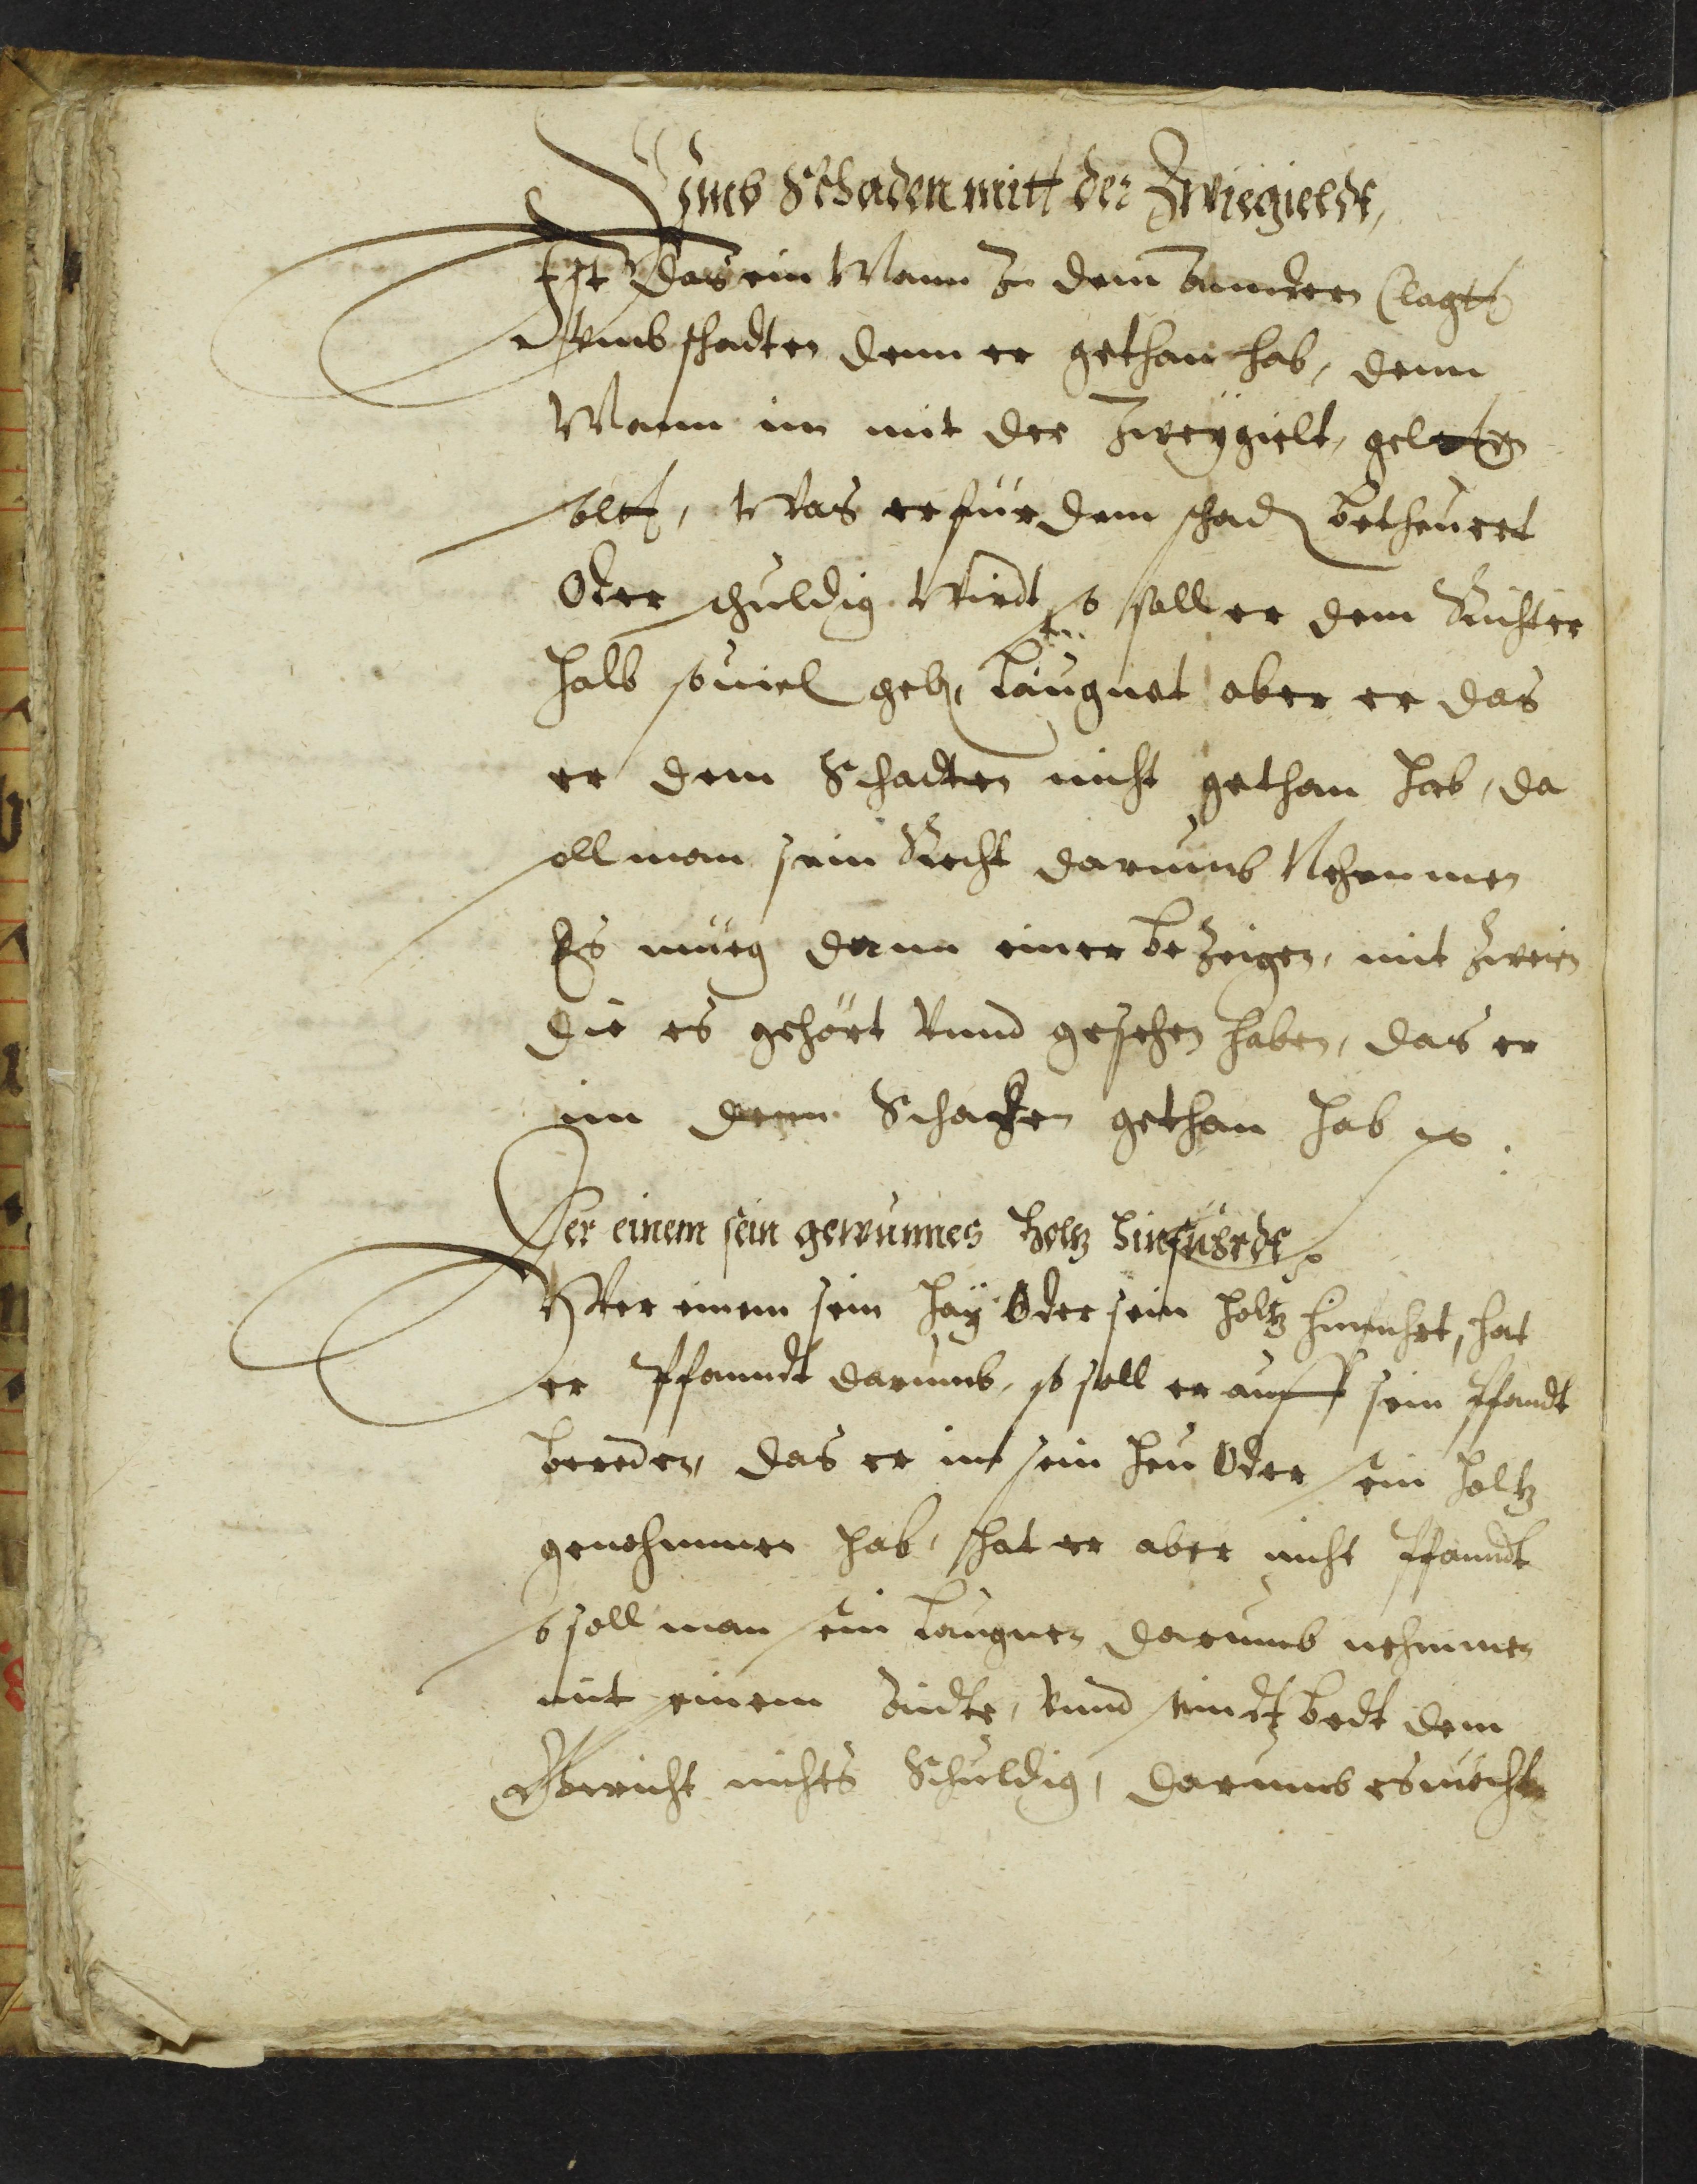 Vmb Schaden mitt der Zwiegieldt,
Ist das ein Mann zu dem anndern Clagt
vmb schadten denn er gethan hab, denn
Mann im mit der Zweygielt, gelten
solt, Was er für dem schaden betheuert
Oder schuldig wirdt so soll er dem Richter
halb souiel geben, Laugnet aber er das
er dem Schadten nicht gethan hab, da
soll man sein Recht darumb Nehmmen
Es mueg dann einer bezeigen, mit zweien
die es gehört vnnd gesehen haben, das er
im denn Schaden gethan hab
Der einem sein gewunnes holtz hinfüerdt
Wer einem sein hay Oder sein holtz hinfuhrt, hat
er Pfanndt darumb, so soll er auff sein Pfandt
bereden, das er im sein heu Oder sein holtz
genohmmen hab, hat er aber nicht Pfanndt
so soll man sein Laugnen darumb nehmmen
mit einem Aidte, vnnd sindt bedt dem
Gericht nichts Schuldig, darumb es möcht